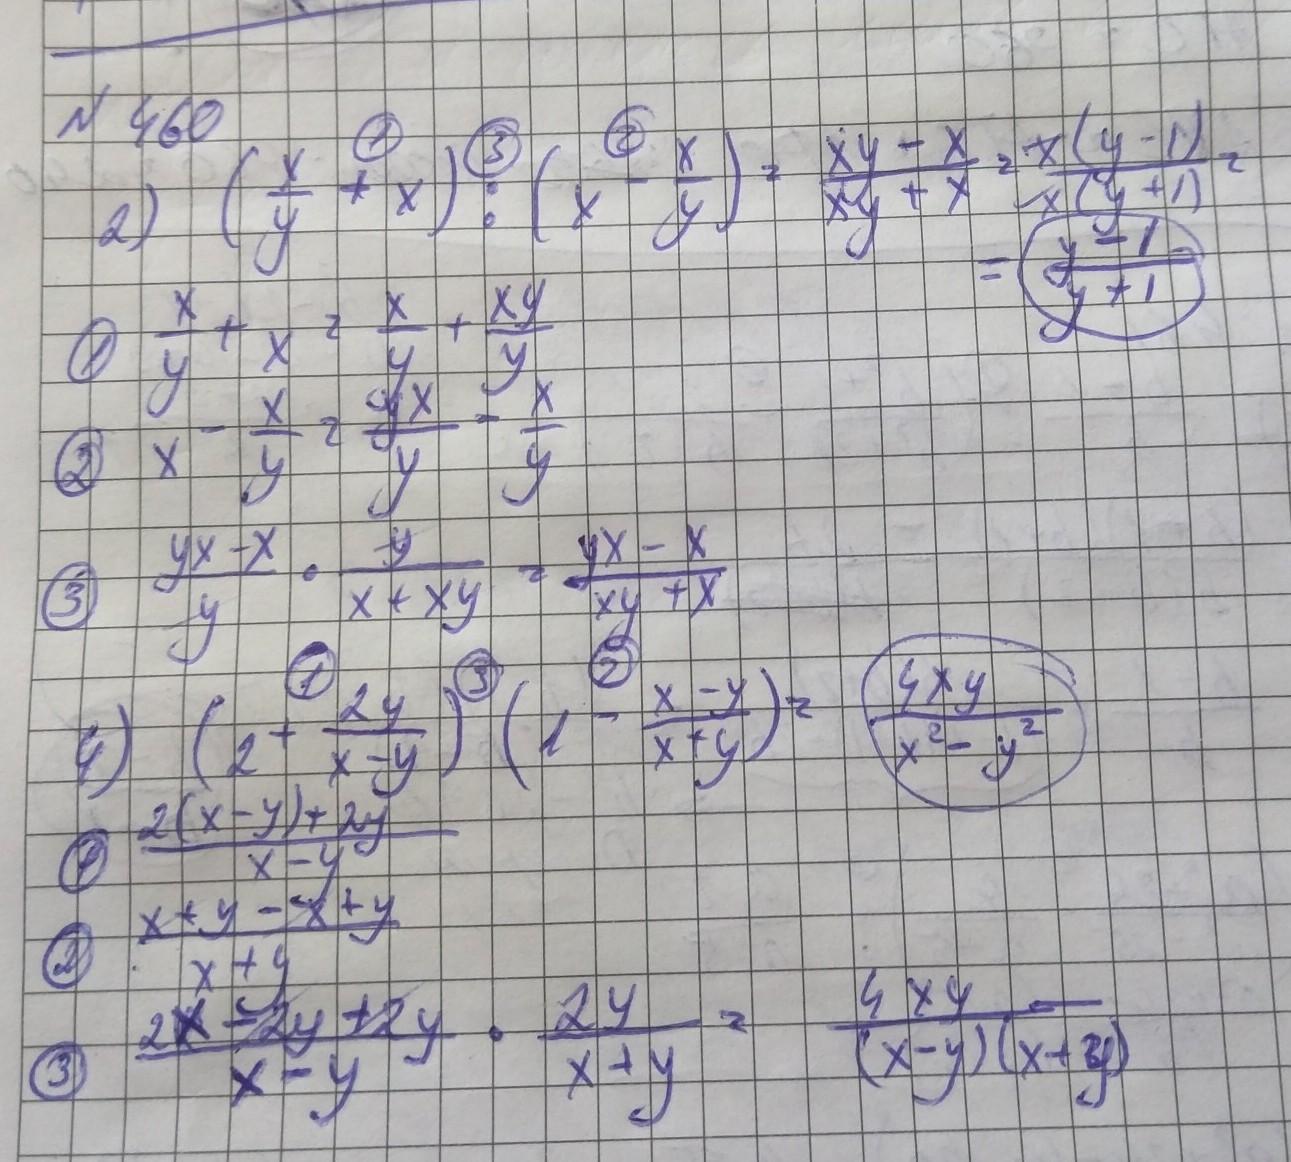 N 460
2) (x/y + x) ① ③ : (x - x/y) ② = (xy - x)/(xy + x) = x(y - 1)/x(y + 1) =
= (y - 1)/(y + 1)
① x/y + x = x/y + xy/y
② x - x/y = yx/y - x/y
③ (yx - x)/y · y/(x + xy) = (yx - x)/(xy + x)
4) (2 + 2y/(x - y)) ① ③ (1 - (x - y)/(x + y)) ② = 4xy/(x² - y²)
① (2(x - y) + 2y)/(x - y)
② (x + y - x + y)/(x + y)
③ (2x - 2y + 2y)/(x - y) · 2y/(x + y) = 4xy/((x - y)(x + y))